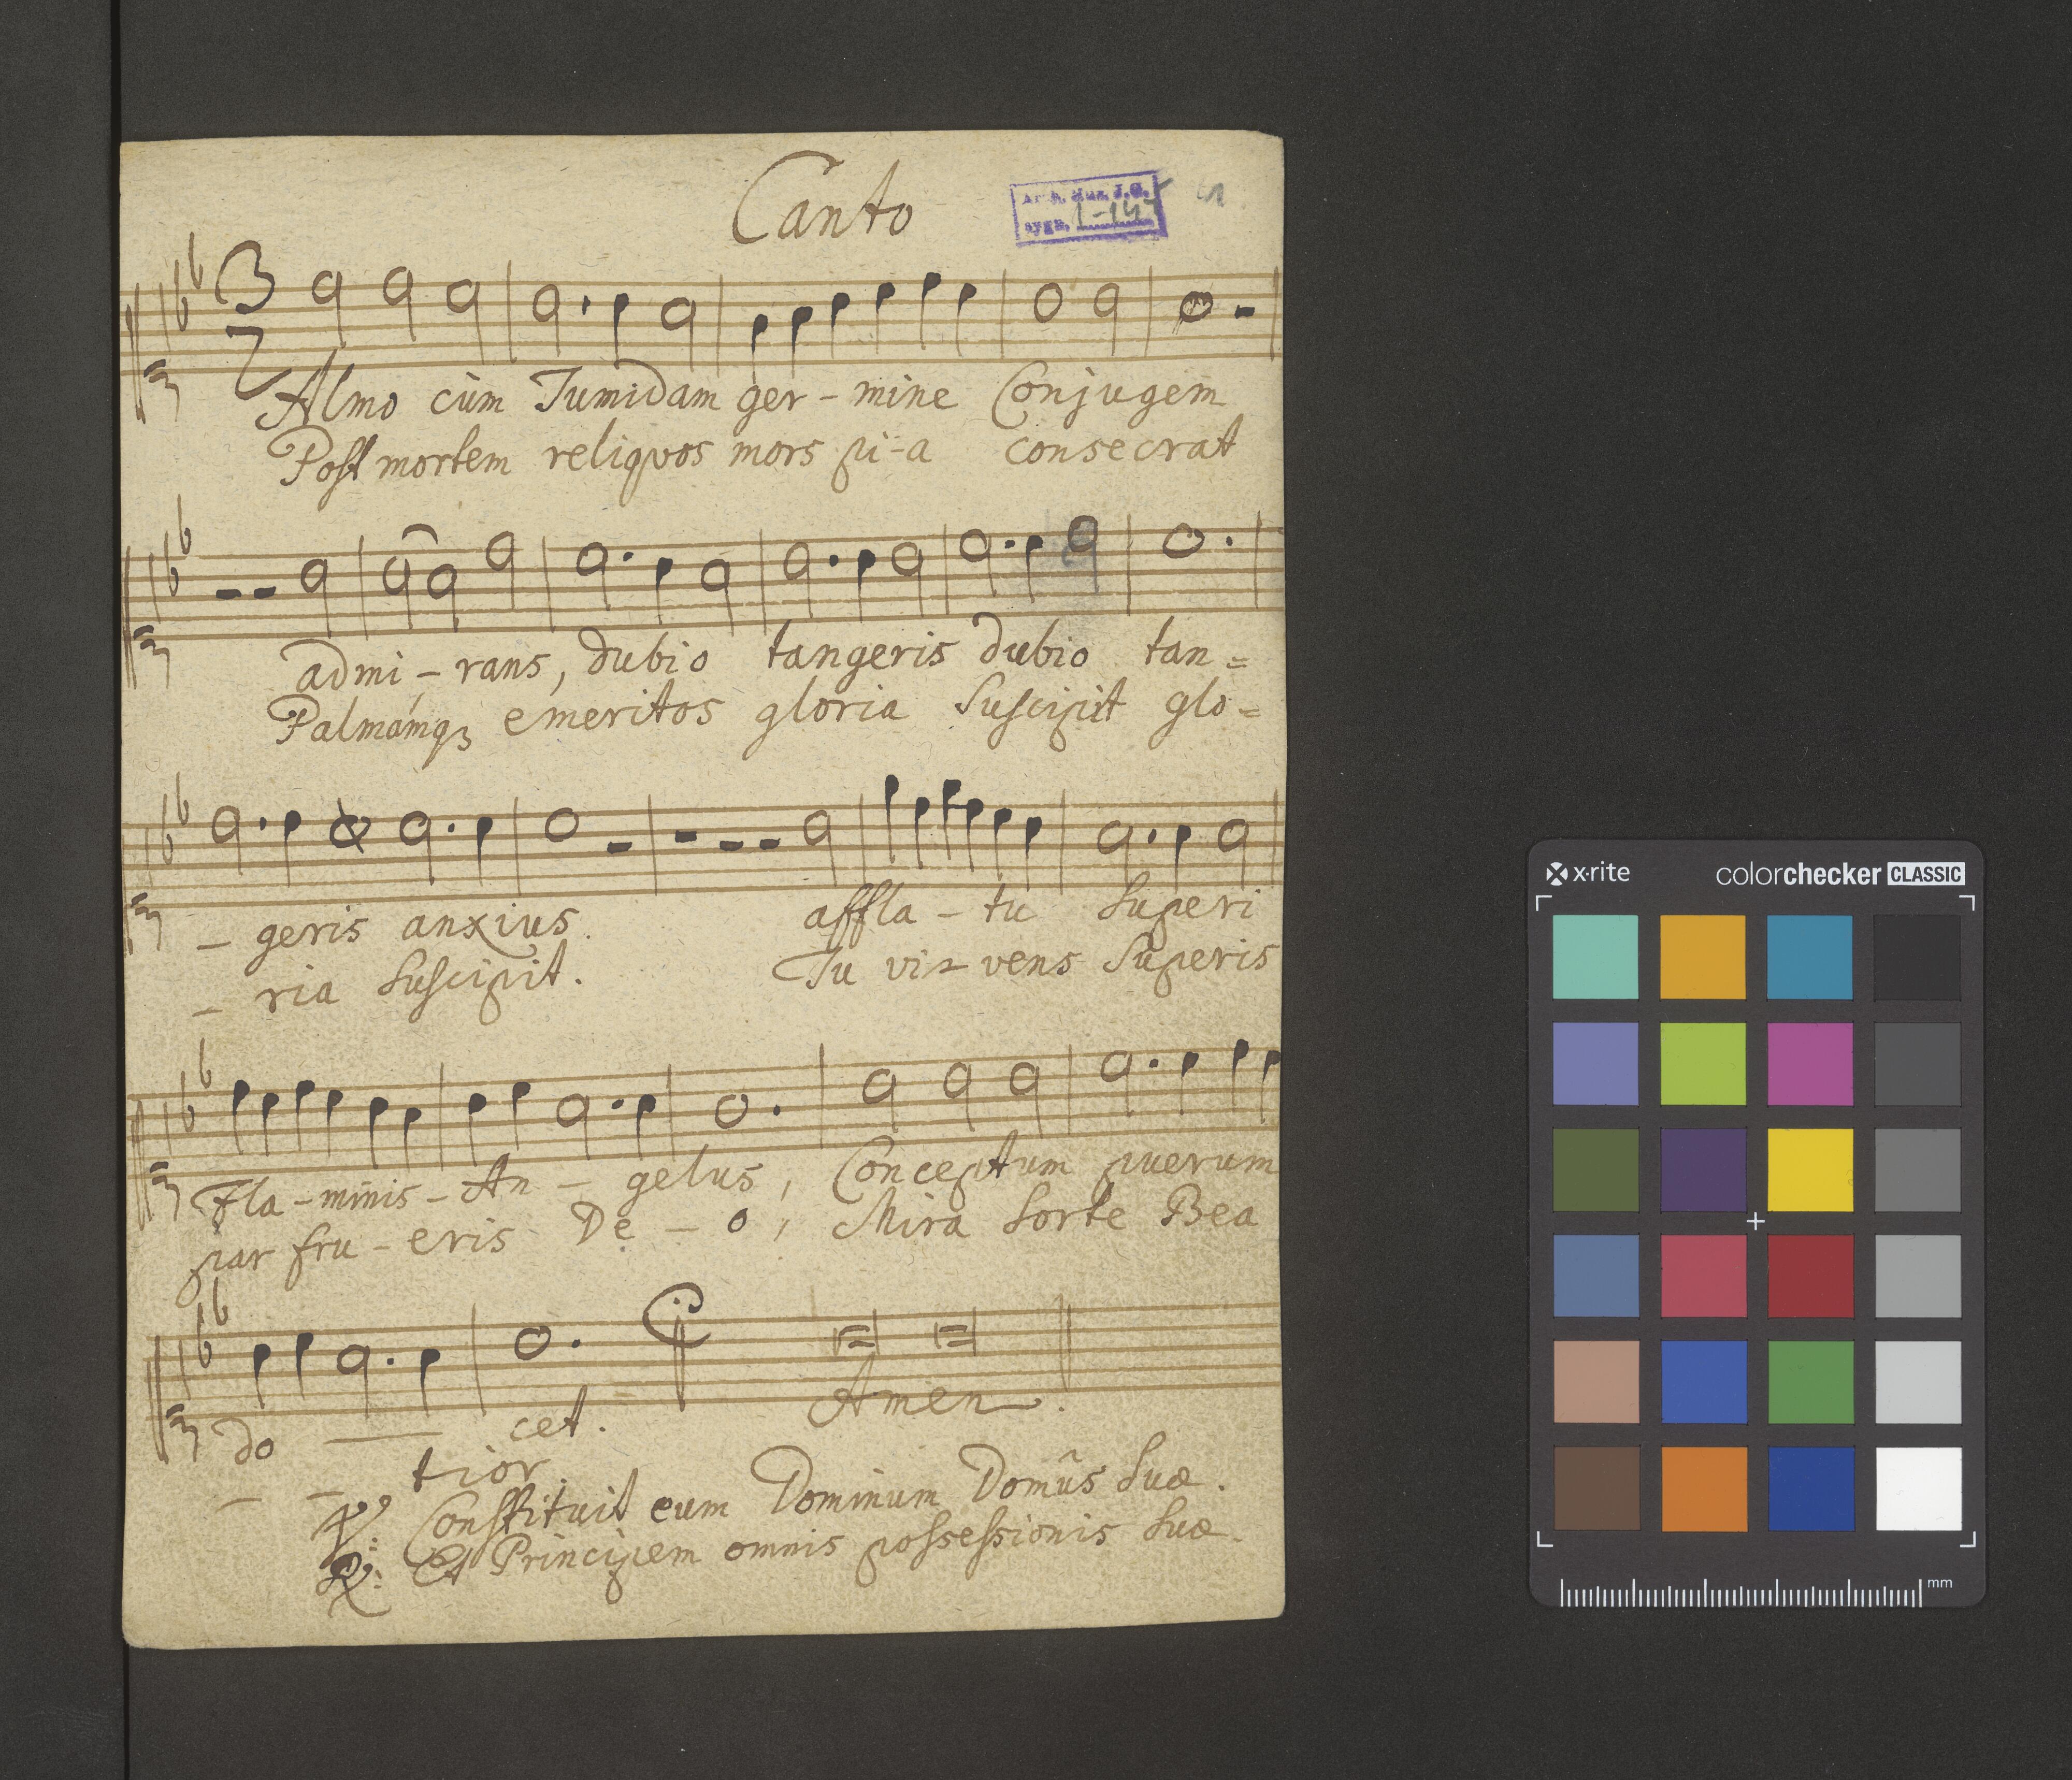 Canto
Arch. Muz. J.G.
sygn. 1-147
3
2
Almo cùm Tumidam ger - mine Conjugem
Post mortem reliquos mors pi - a consecrat
admi - rans, dubio tangeris dubio tan=
Palmámqꝫ emeritos gloria suscipit glo=
- geris anxius. affla - tu superi
- ria suscipit. Tu vi - vens superis
Fla - minis - An - gelus, Conceptum puerum
par fru - eris De - o, Mira sorte Bea
do — cet. Amen.
- - tior
℣: Constituit eum Dominum Domûs suæ.
℟: Et Principem omnis possessionis suæ.
x·rite colorchecker CLASSIC
mm